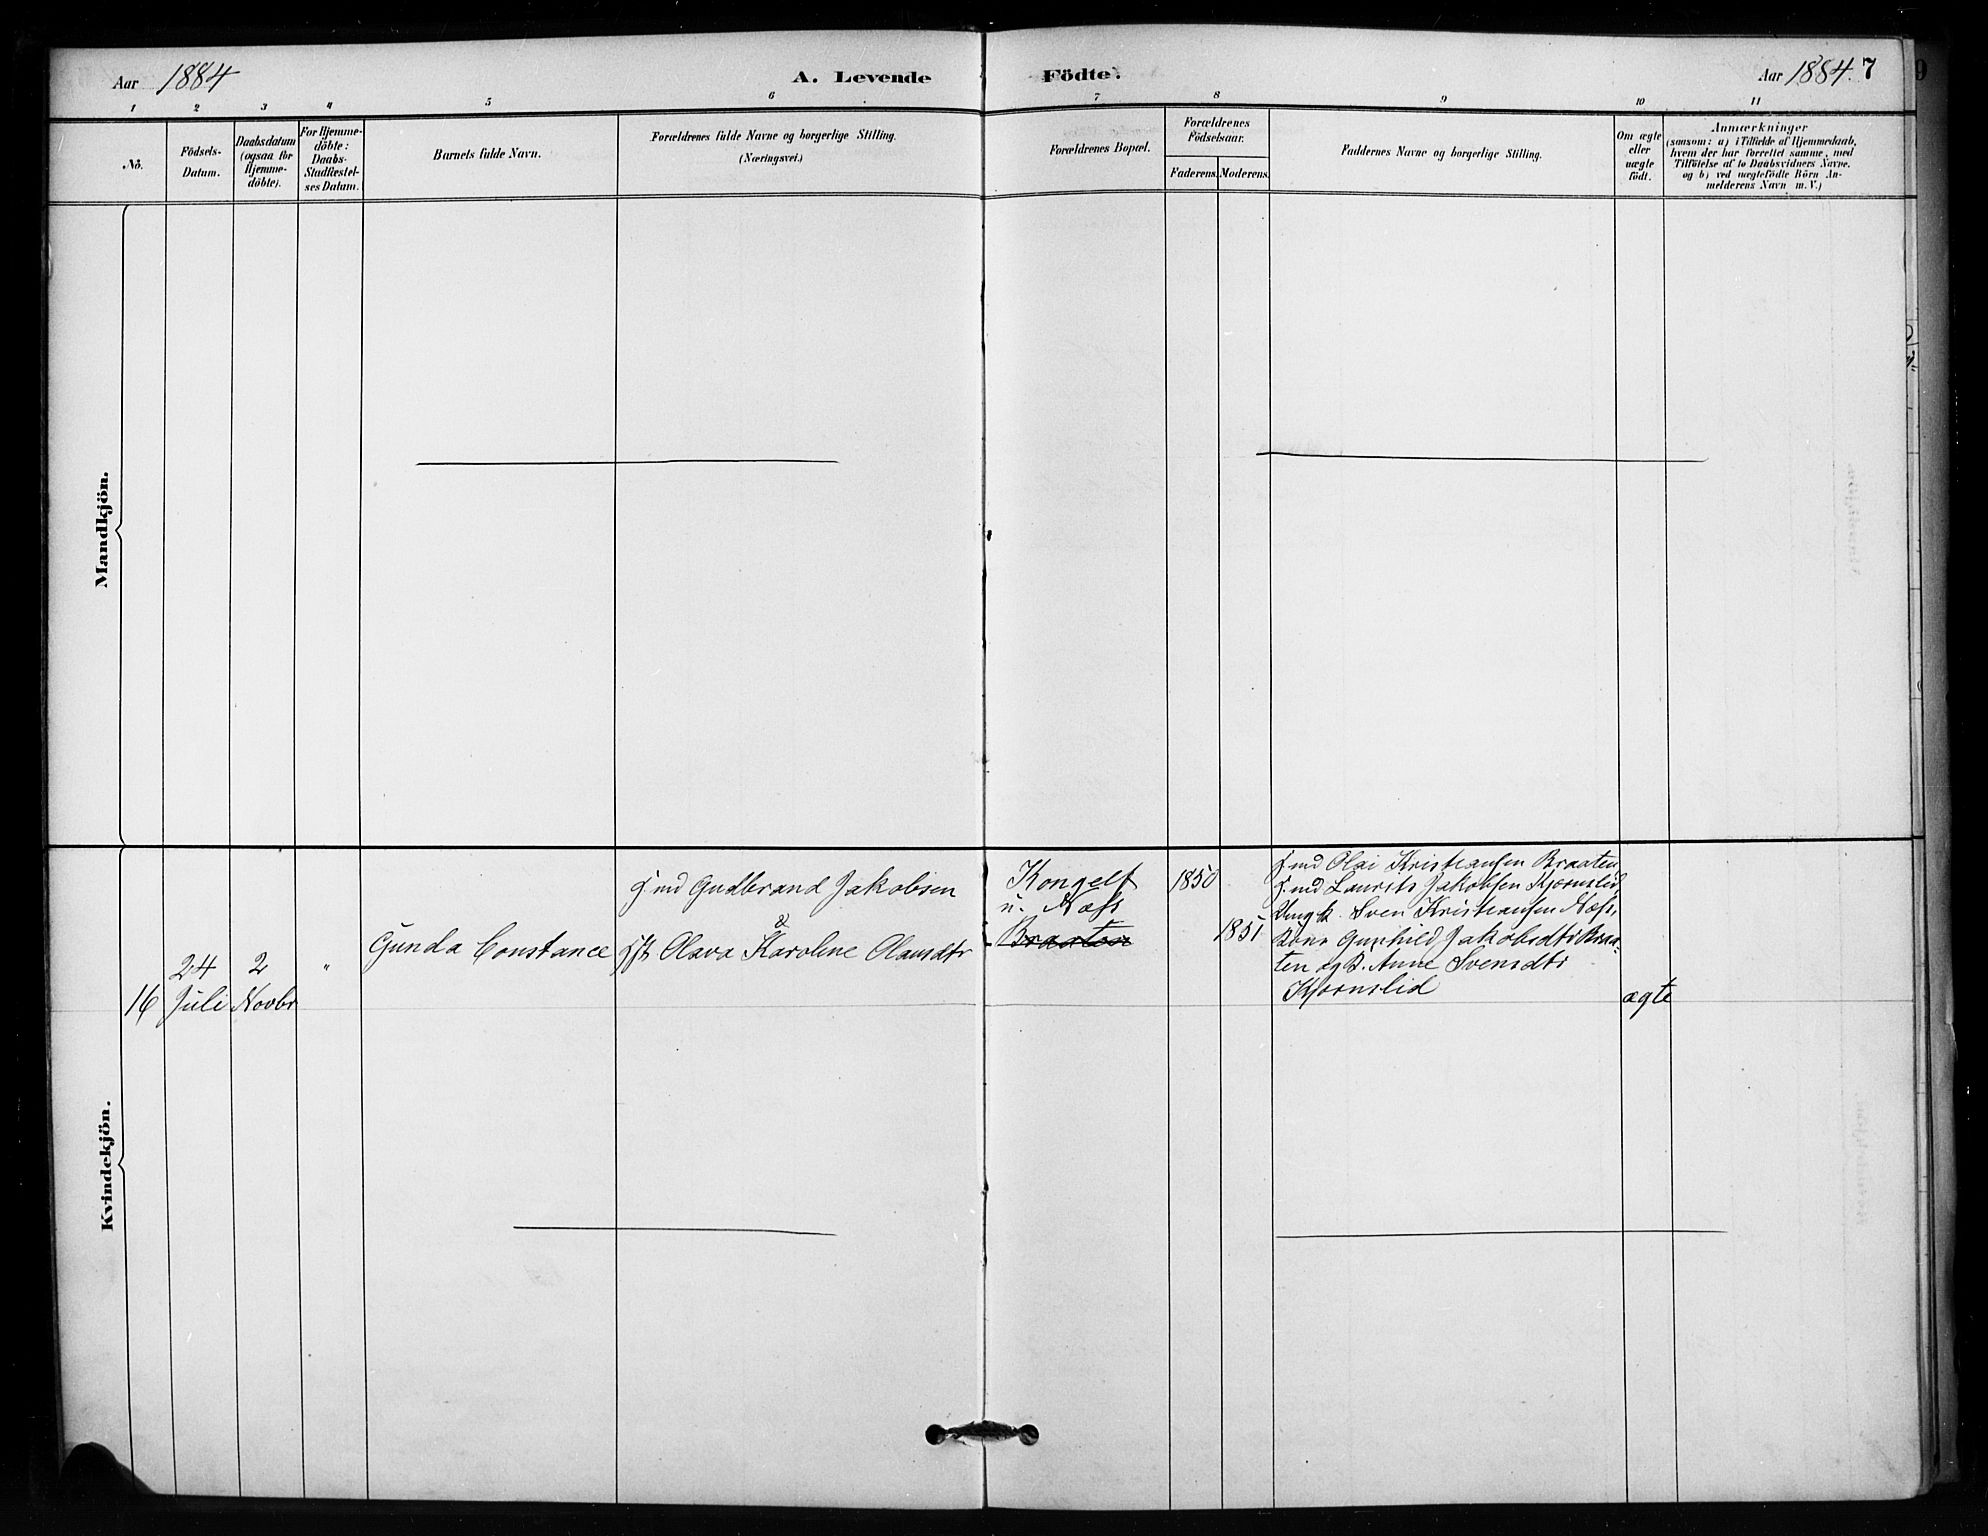 Aar 1884
A. Levende Födte.
Aar 1884. 7
9
1 2 3 4 5 6 7 8 9 10 11
No.
Födsels-
Datum.
Daabsdatum
(ogsaa for
Hjemme-
döbte).
For Hjemme-
döbte:
Daabs-
Stadfæstel-
ses Datum.
Barnets fulde Navn.
Forældrenes fulde Navne og borgerlige Stilling.
(Næringsvei.)
Forældrenes Bopæl.
Forældrenes
Födselsaar.
Faderens. Moderens.
Faddernes Navne og borgerlige Stilling.
Om ægte
eller
uægte
födt.
Anmærkninger
(saasom: a) i Tilfælde af Hjemmedaab,
hvem der har forrettet samme, med
Tilföielse af to Daabsvidners Navne.
og b) ved uægtefödte Börn An-
melderens Navn m. V.)
Mandkjön.
Kvindekjön.
16
24
Juli
2
Novbr
"
Gunda Constance
Gudbrand Jakobsen
&
Olava Karoline Olausdtr
Kongelf
u. Næss
Braaten
1850
1851
Olai Kristiansen Braaten,
Laurits Jakobsen Kjørnslid,
Ungk. Sven Kristiansen Næss,
Kone Gunhild Jakobsdtr Braa-
ten og P. Anne Svensdtr
Kjørnslid
ægte